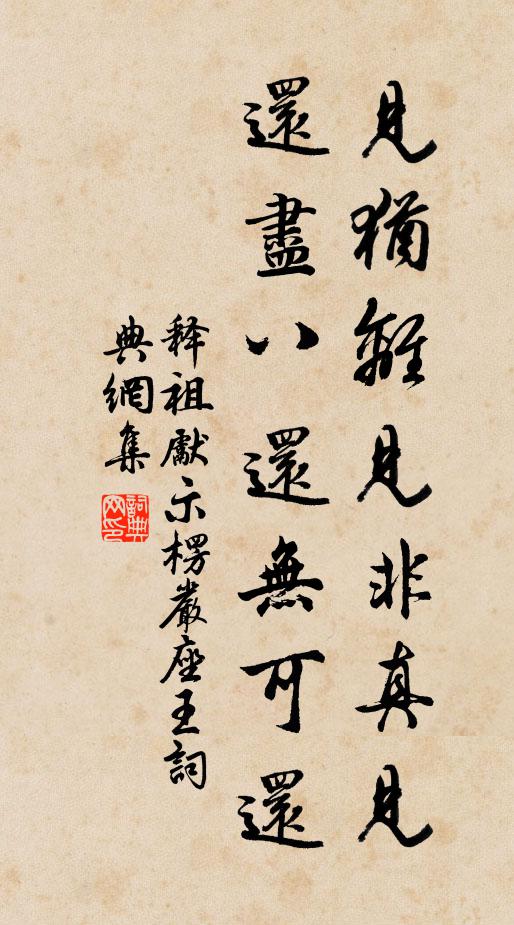 見猶離見非真見
還盡八還無可還
释祖獻示楞嚴座王詞
典網集
詞典網印